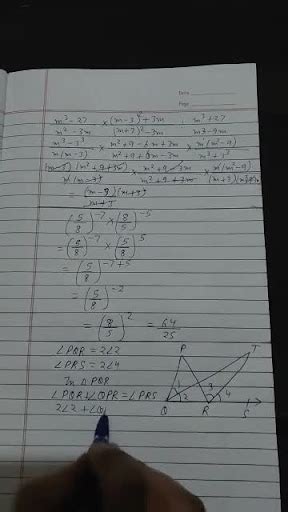 Date
Page
m³-27/m²-3m × (m-3)²+3m/(m+3)²-3m ÷ m³+27/m³-9m
m³-3³/m(m-3) × m²+9-6m+3m/m²+9+6m-3m × m(m²-9)/m³+3³
(m-3)(m²+9+3m)/m(m-3) × m²+9-3m/m²+9+3m × m(m²-9)/(m+3)
(5/8)⁻⁷ × (8/5)⁻⁵
= (5/8)⁻⁷ × (5/8)⁵
= (5/8)⁻⁷⁺⁵
= (5/8)⁻²
= (8/5)² = 64/25
∠PQR = 2∠2
∠PRS = 2∠4
In △PQR
∠PQR+∠QPR = ∠PRS
2∠2 +
P
T
1
2
3
4
Q
R
S